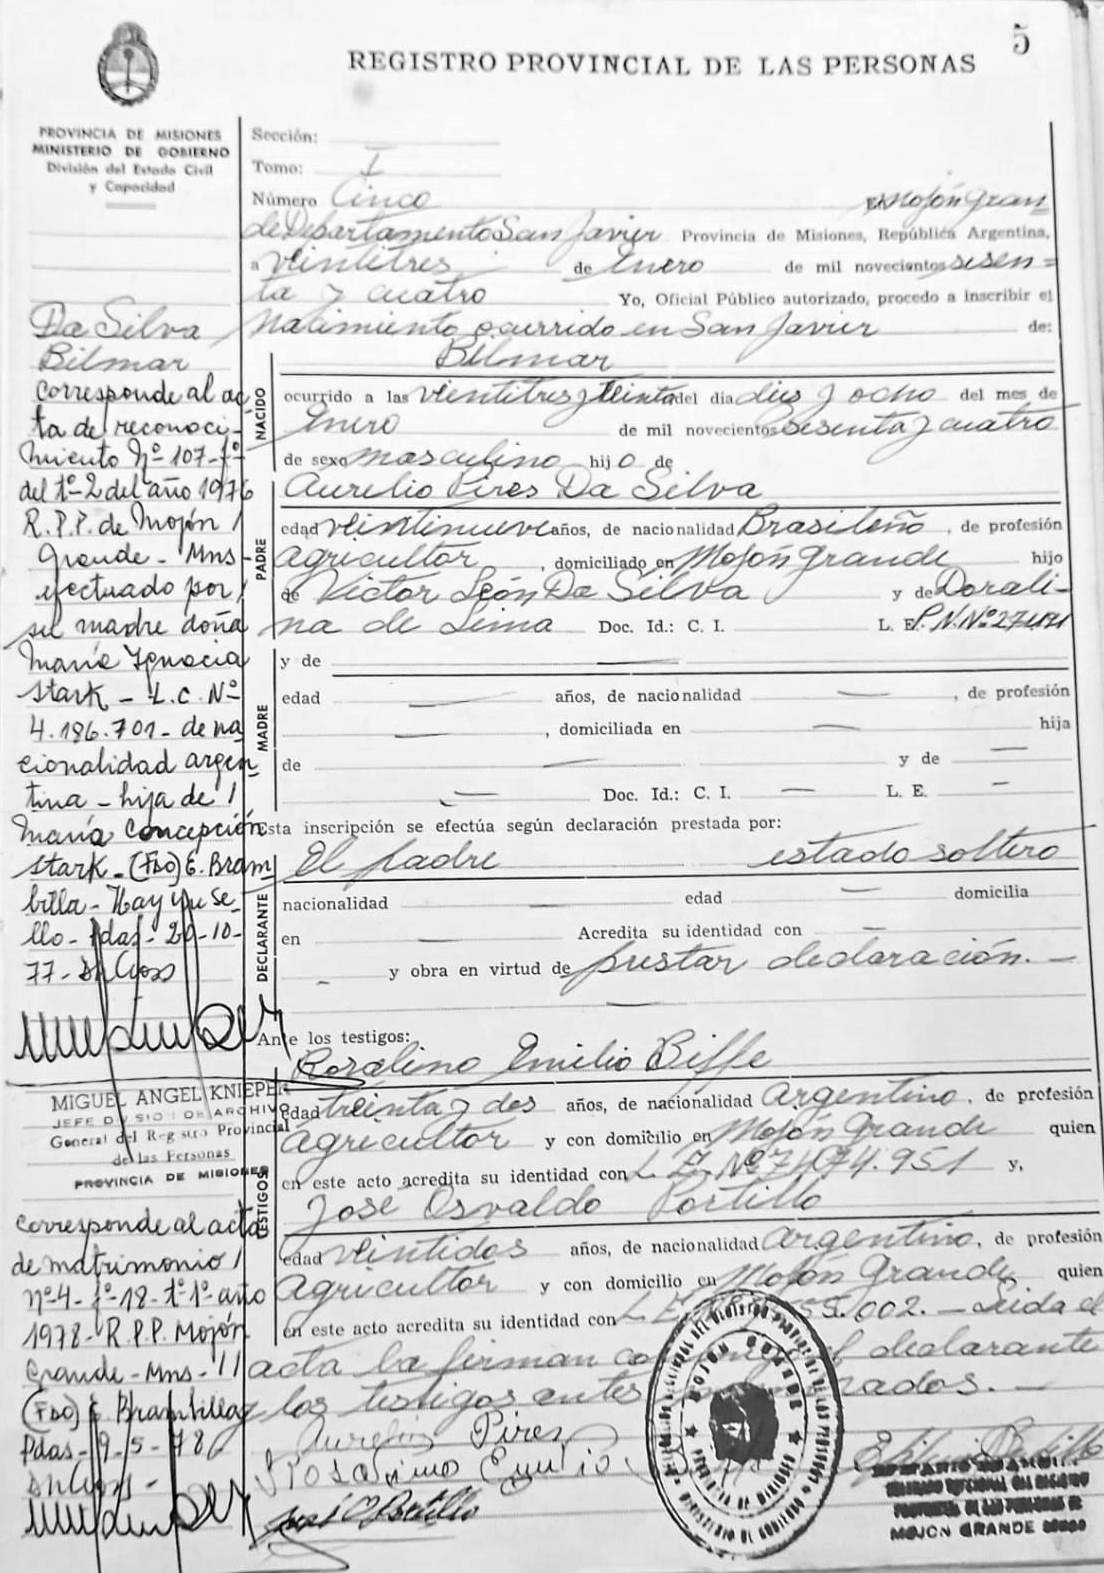 5
REGISTRO PROVINCIAL DE LAS PERSONAS
PROVINCIA DE MISIONES
MINISTERIO DE GOBIERNO
División del Estado Civil
y Capacidad
Da Silva
Bilmar
corresponde al ac
ta de reconoci-
miento Nº 107-fº
del tº-2 del año 1976
R.P.P. de Mojón
Grande - Mns -
efectuado por
su madre doña
María Ignacia
Stark - L.C. Nº
4.186.701 - de na
cionalidad argen
tina - hija de
María Concepción
Stark - (Fdo) E. Bram
billa - Hay un Se-
llo - Pdas - 20-10-
77-
MIGUEL ANGEL KNIEPER
JEFE DIVISION DE ARCHIVO
General del Registro Provincial
de las Personas
PROVINCIA DE MISIONES
corresponde al acta
de matrimonio
nº-4-fº-18-tº1º-año
1978-R.P.P. Mojón
Grande-Mns-
(Fdo) E. Brambilla
Pdas-19-5-78
Sección:
Tomo: I
Número Cinco En Mojón Gran
de Departamento San Javier Provincia de Misiones, República Argentina,
a veintitres de Enero de mil novecientos sesen=
ta y cuatro Yo, Oficial Público autorizado, procedo a inscribir el
Nacimiento ocurrido en San Javier de:
NACIDO
Bilmar
ocurrido a las veintitres y treinta del día dies y ocho del mes de
Enero de mil novecientos sesenta y cuatro
de sexo masculino hijo de
PADRE
Aurelio Pires Da Silva
edad veintinueve años, de nacionalidad Brasileño, de profesión
agricultor, domiciliado en Mojón Grande hijo
de Victor León Da Silva y de Dorali-
na de Lima Doc. Id.: C. I. L. E. P.N.Nº
MADRE
y de —
edad — años, de nacionalidad —, de profesión
—, domiciliada en — hija
de — y de —
— Doc. Id.: C. I. — L. E. —
Esta inscripción se efectúa según declaración prestada por:
DECLARANTE
El padre estado soltero
nacionalidad — edad — domicilia
en — Acredita su identidad con —
- y obra en virtud de prestar declaración. —
—
Ante los testigos:
TESTIGOS
Rosalino Emilio Biffe
edad treinta y dos años, de nacionalidad Argentino, de profesión
agricultor y con domicilio en Mojón Grande quien
en este acto acredita su identidad con L.E. Nº 7.474.951 y,
José Osvaldo Portillo
edad veintidos años, de nacionalidad argentino, de profesión
agricultor y con domicilio en Mojón Grande quien
en este acto acredita su identidad con L.E. 55.002. — Leida el
acta la firman declarante
y los testigos antes
Aurelio Pires
Rosalino Emilio
José O Portillo
MOJON GRANDE
PROVINCIA DE MISIONES
MINISTERIO DE GOBIERNO
MOJON GRANDE